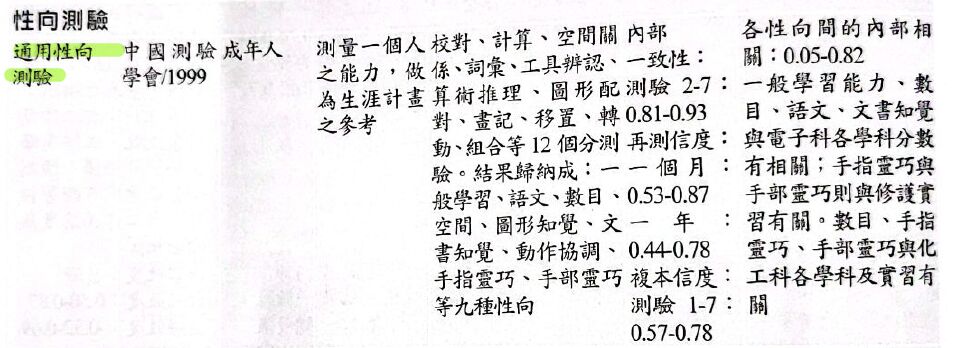 性向測驗
通用性向
測驗
中國測驗
學會/1999
成年人
測量一個人
之能力，做
為生涯計畫
之參考
校對、計算、空間關
係、詞彙、工具辨認、
算術推理、圖形配
對、畫記、移置、轉
動、組合等12個分測
驗。結果歸納成：一
般學習、語文、數目、
空間、圖形知覺、文
書知覺、動作協調、
手指靈巧、手部靈巧
等九種性向
內部
一致性：
測驗 2-7：
0.81-0.93
再測信度：
一個月：
0.53-0.87
一年：
0.44-0.78
複本信度：
測驗 1-7：
0.57-0.78
各性向間的內部相
關：0.05-0.82
一般學習能力、數
目、語文、文書知覺
與電子科各學科分數
有相關；手指靈巧與
手部靈巧則與修護實
習有關。數目、手指
靈巧、手部靈巧與化
工科各學科及實習有
關